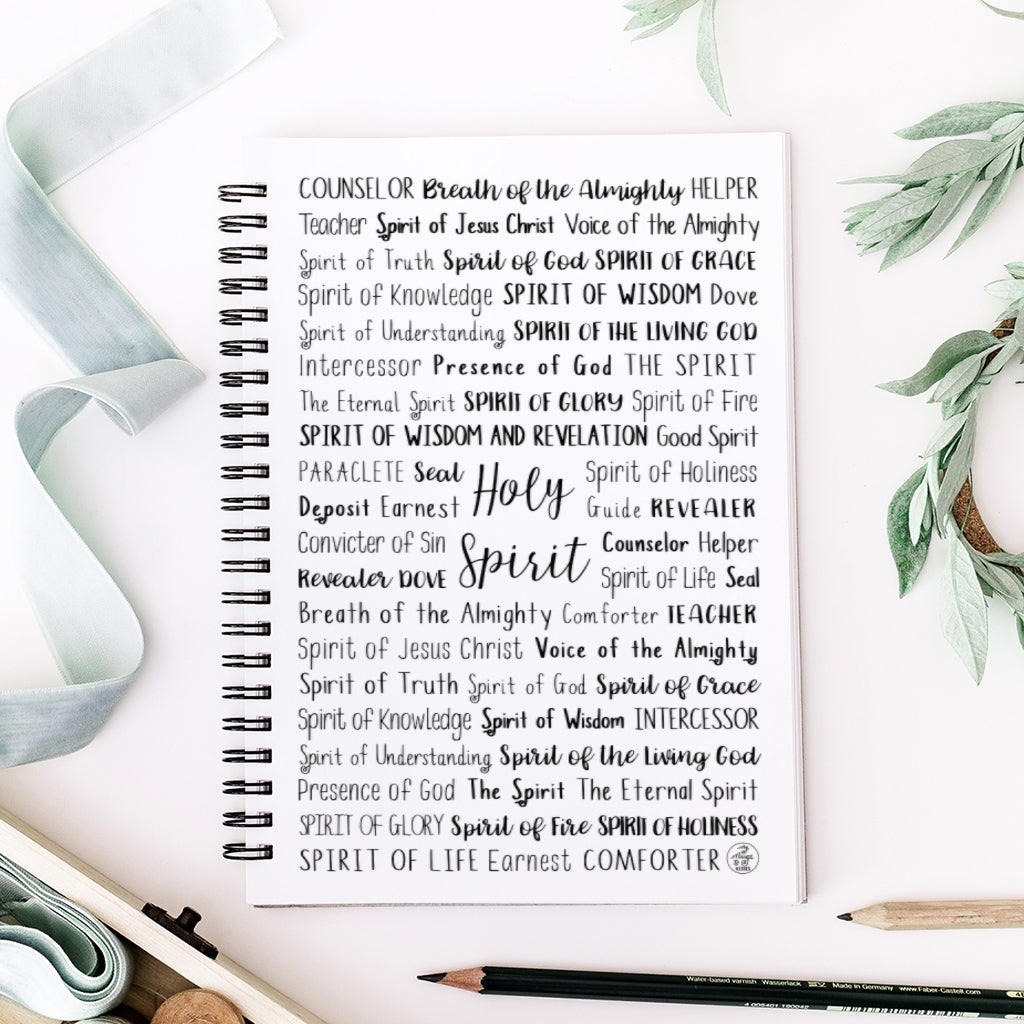 COUNSELOR Breath of the Almighty HELPER
Teacher Spirit of Jesus Christ Voice of the Almighty
Spirit of Truth Spirit of God SPIRIT OF GRACE
Spirit of Knowledge SPIRIT OF WISDOM Dove
Spirit of Understanding SPIRIT OF THE LIVING GOD
Intercessor Presence of God THE SPIRIT
The Eternal Spirit SPIRIT OF GLORY Spirit of Fire
SPIRIT OF WISDOM AND REVELATION Good Spirit
PARACLETE Seal Spirit of Holiness
Holy
Deposit Earnest Guide REVEALER
Convicter of Sin Counselor Helper
Spirit
Revealer DOVE Spirit of Life Seal
Breath of the Almighty Comforter TEACHER
Spirit of Jesus Christ Voice of the Almighty
Spirit of Truth Spirit of God Spirit of Grace
Spirit of Knowledge Spirit of Wisdom INTERCESSOR
Spirit of Understanding Spirit of the Living God
Presence of God The Spirit The Eternal Spirit
SPIRIT OF GLORY Spirit of Fire SPIRIT OF HOLINESS
SPIRIT OF LIFE Earnest COMFORTER
Water-based varnish Wasserlack Made in Germany www.Faber-Castell.com
4 005401 190042